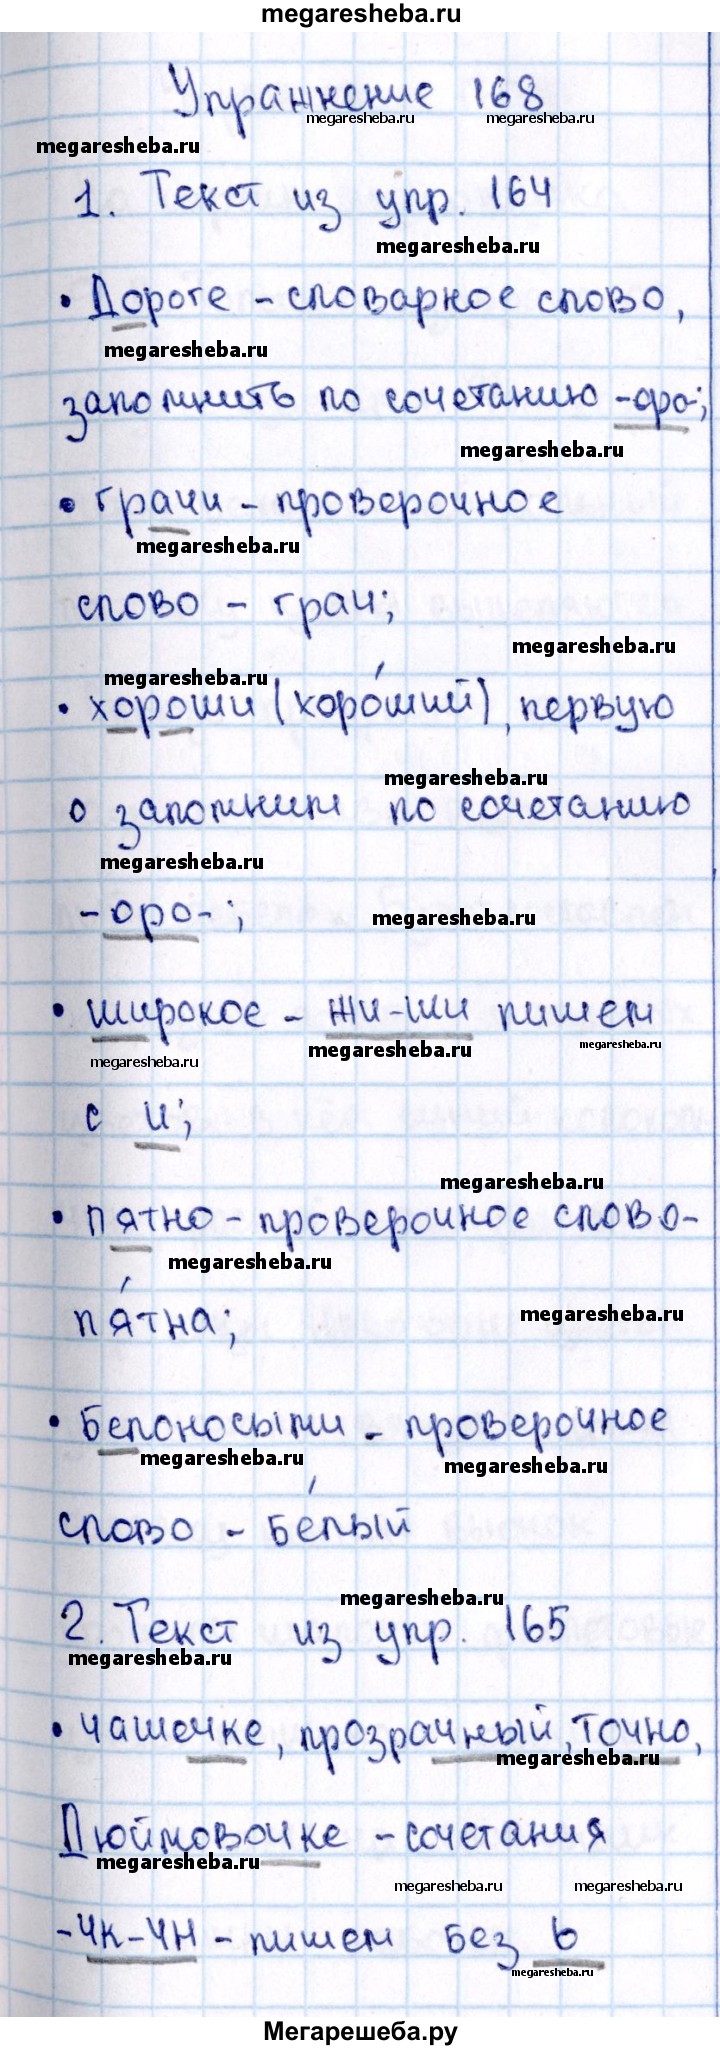 megaresheba.ru
Упражнение 168
megaresheba.ru megaresheba.ru
megaresheba.ru
1. Текст из упр. 164
megaresheba.ru
• Дороге - словарное слово,
megaresheba.ru
запомнить по сочетанию -оро-;
megaresheba.ru
• грачи - проверочное
megaresheba.ru
слово - грач;
megaresheba.ru
megaresheba.ru
• хороши (хоро́ший), первую
megaresheba.ru
о запомним по сочетанию
megaresheba.ru
-оро-;
megaresheba.ru
• широкое - жи-ши пишем
megaresheba.ru megaresheba.ru megaresheba.ru
с и;
megaresheba.ru
• пятно - проверочное слово-
megaresheba.ru
пя́тна;
megaresheba.ru
• Белоносыми - проверочное
megaresheba.ru megaresheba.ru
слово - бе́лый
megaresheba.ru
2. Текст из упр. 165
megaresheba.ru
• чашечке, прозрачный, точно,
megaresheba.ru
Дюймовочке - сочетания
megaresheba.ru
megaresheba.ru megaresheba.ru
-чк-чн - пишем без ь
megaresheba.ru
Мегарешеба.ру